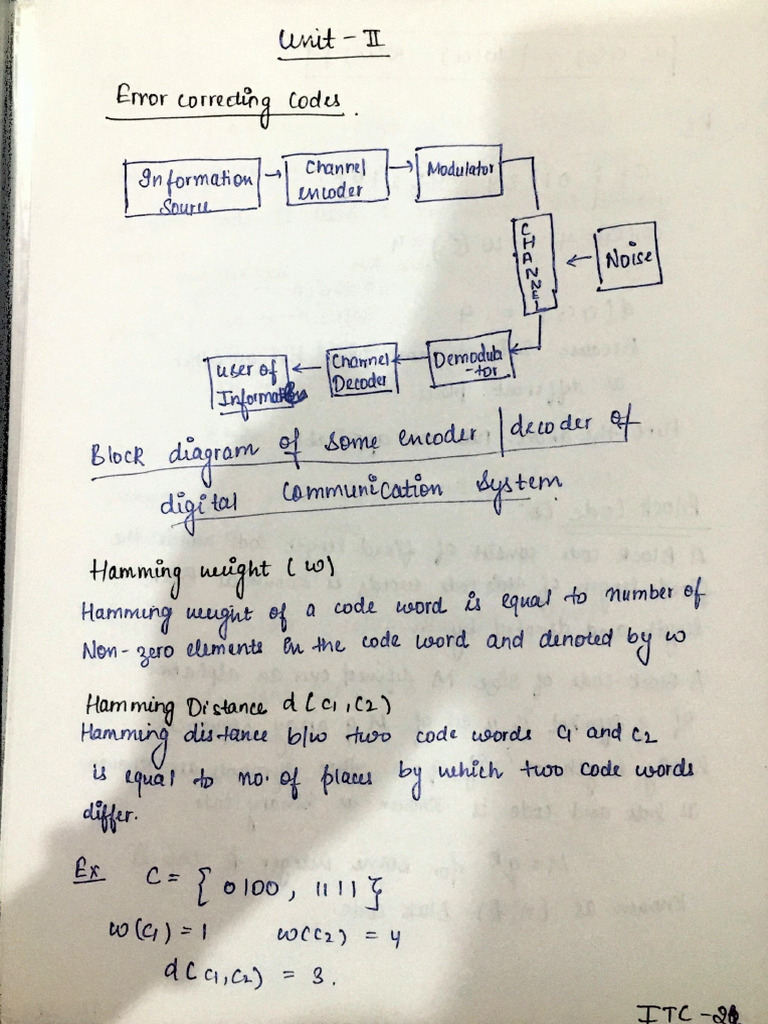 Unit - II
Error correcting Codes.
Information
Source
Channel
encoder
Modulator
CHANNEL
Noise
Demodula
-tor
Channel
Decoder
User of
Information
Block diagram of some encoder | decoder of
digital communication system
Hamming weight (w)
Hamming weight of a code word is equal to number of
Non-zero elements in the code word and denoted by w
Hamming Distance d(c1,c2)
Hamming distance b/w two code words c1 and c2
is equal to no. of places by which two code words
differ.
Ex C = { 0100, 1111 }
w(c1) = 1 w(c2) = 4
d(c1,c2) = 3.
ITC -